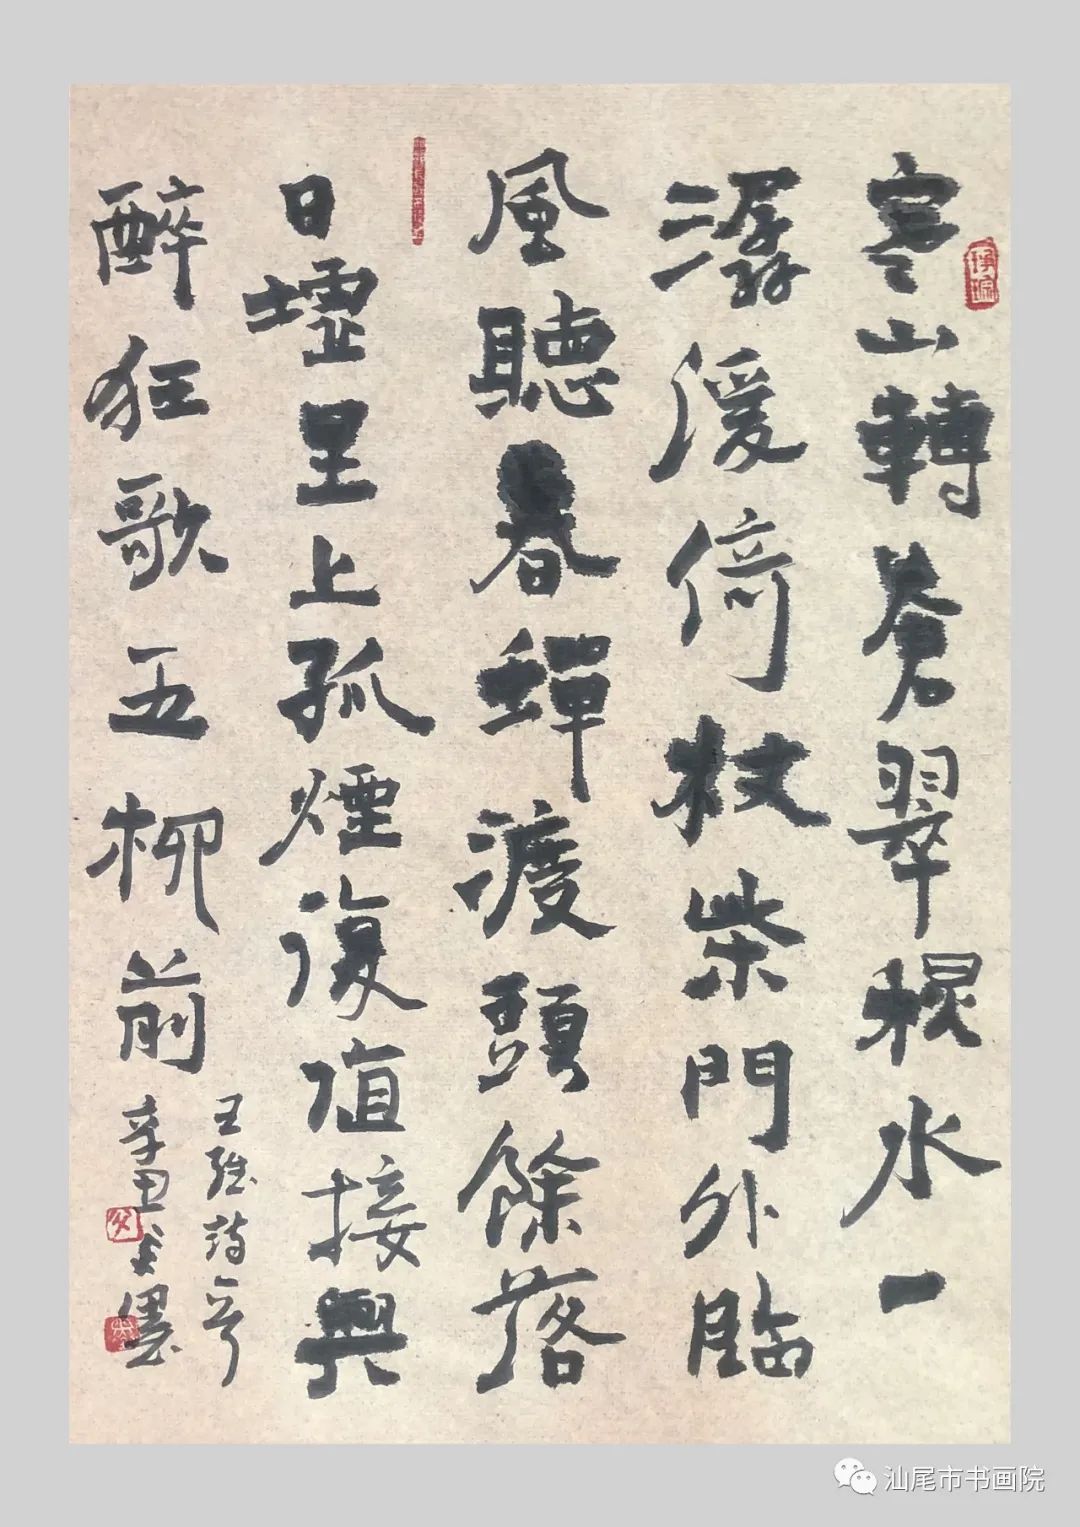 寒山轉蒼翠秋水一
潺湲倚杖柴門外臨
風聽暮蟬渡頭餘落
日墟里上孤煙復值接輿
醉狂歌五柳前
王維詩一首
汕尾市书画院